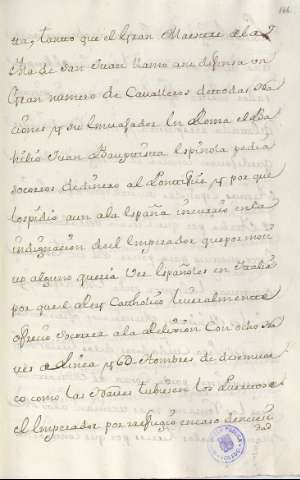 ra, tanto que el Gran Maestre de la
Isla de San Juan llamo a su defensa un
Gran numero de Cavalleros de todas Na
ciones y su Embaxador en Roma el Ba
Juan Bauptista Espinola pedia
socorros de dinero al Pontifice y por que
los pidio aun a la España incurrio en la
indignacion de el Emperador que por moti
vo alguno queria ver Españoles en Italia
por que el Rey Catholico liveralmente
ofrecio socorrer a la Relixion con ocho Na
vies de Linea y 6D. Hombres de
co como las Naves tubiesen los Puertos de
el Emperador por refugio en caso de neces
dad